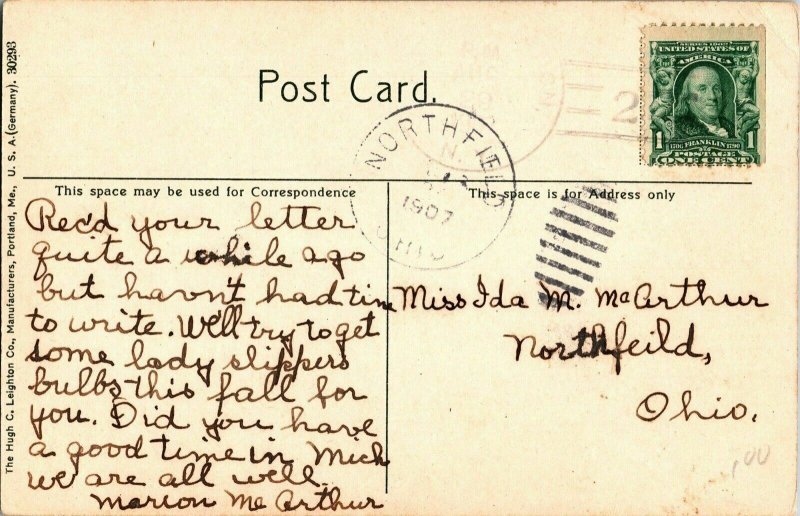 Post Card.
SERIES 1902
UNITED STATES OF
AMERICA
1706 FRANKLIN 1790
1 POSTAGE 1
ONE CENT
NORTHFIELD
1907
OHIO
2
This space may be used for Correspondence
This space is for Address only
Rec'd your letter
quite a while ago
but havn't had time
to write. We'll try to get
some lady slippers
bulbs this fall for
you. Did you have
a good time in Mich
we are all well.
Marion McArthur
Miss Ida M. McArthur
Northfeild,
Ohio.
1.00
The Hugh C. Leighton Co., Manufacturers, Portland, Me., U. S. A. (Germany). 30293